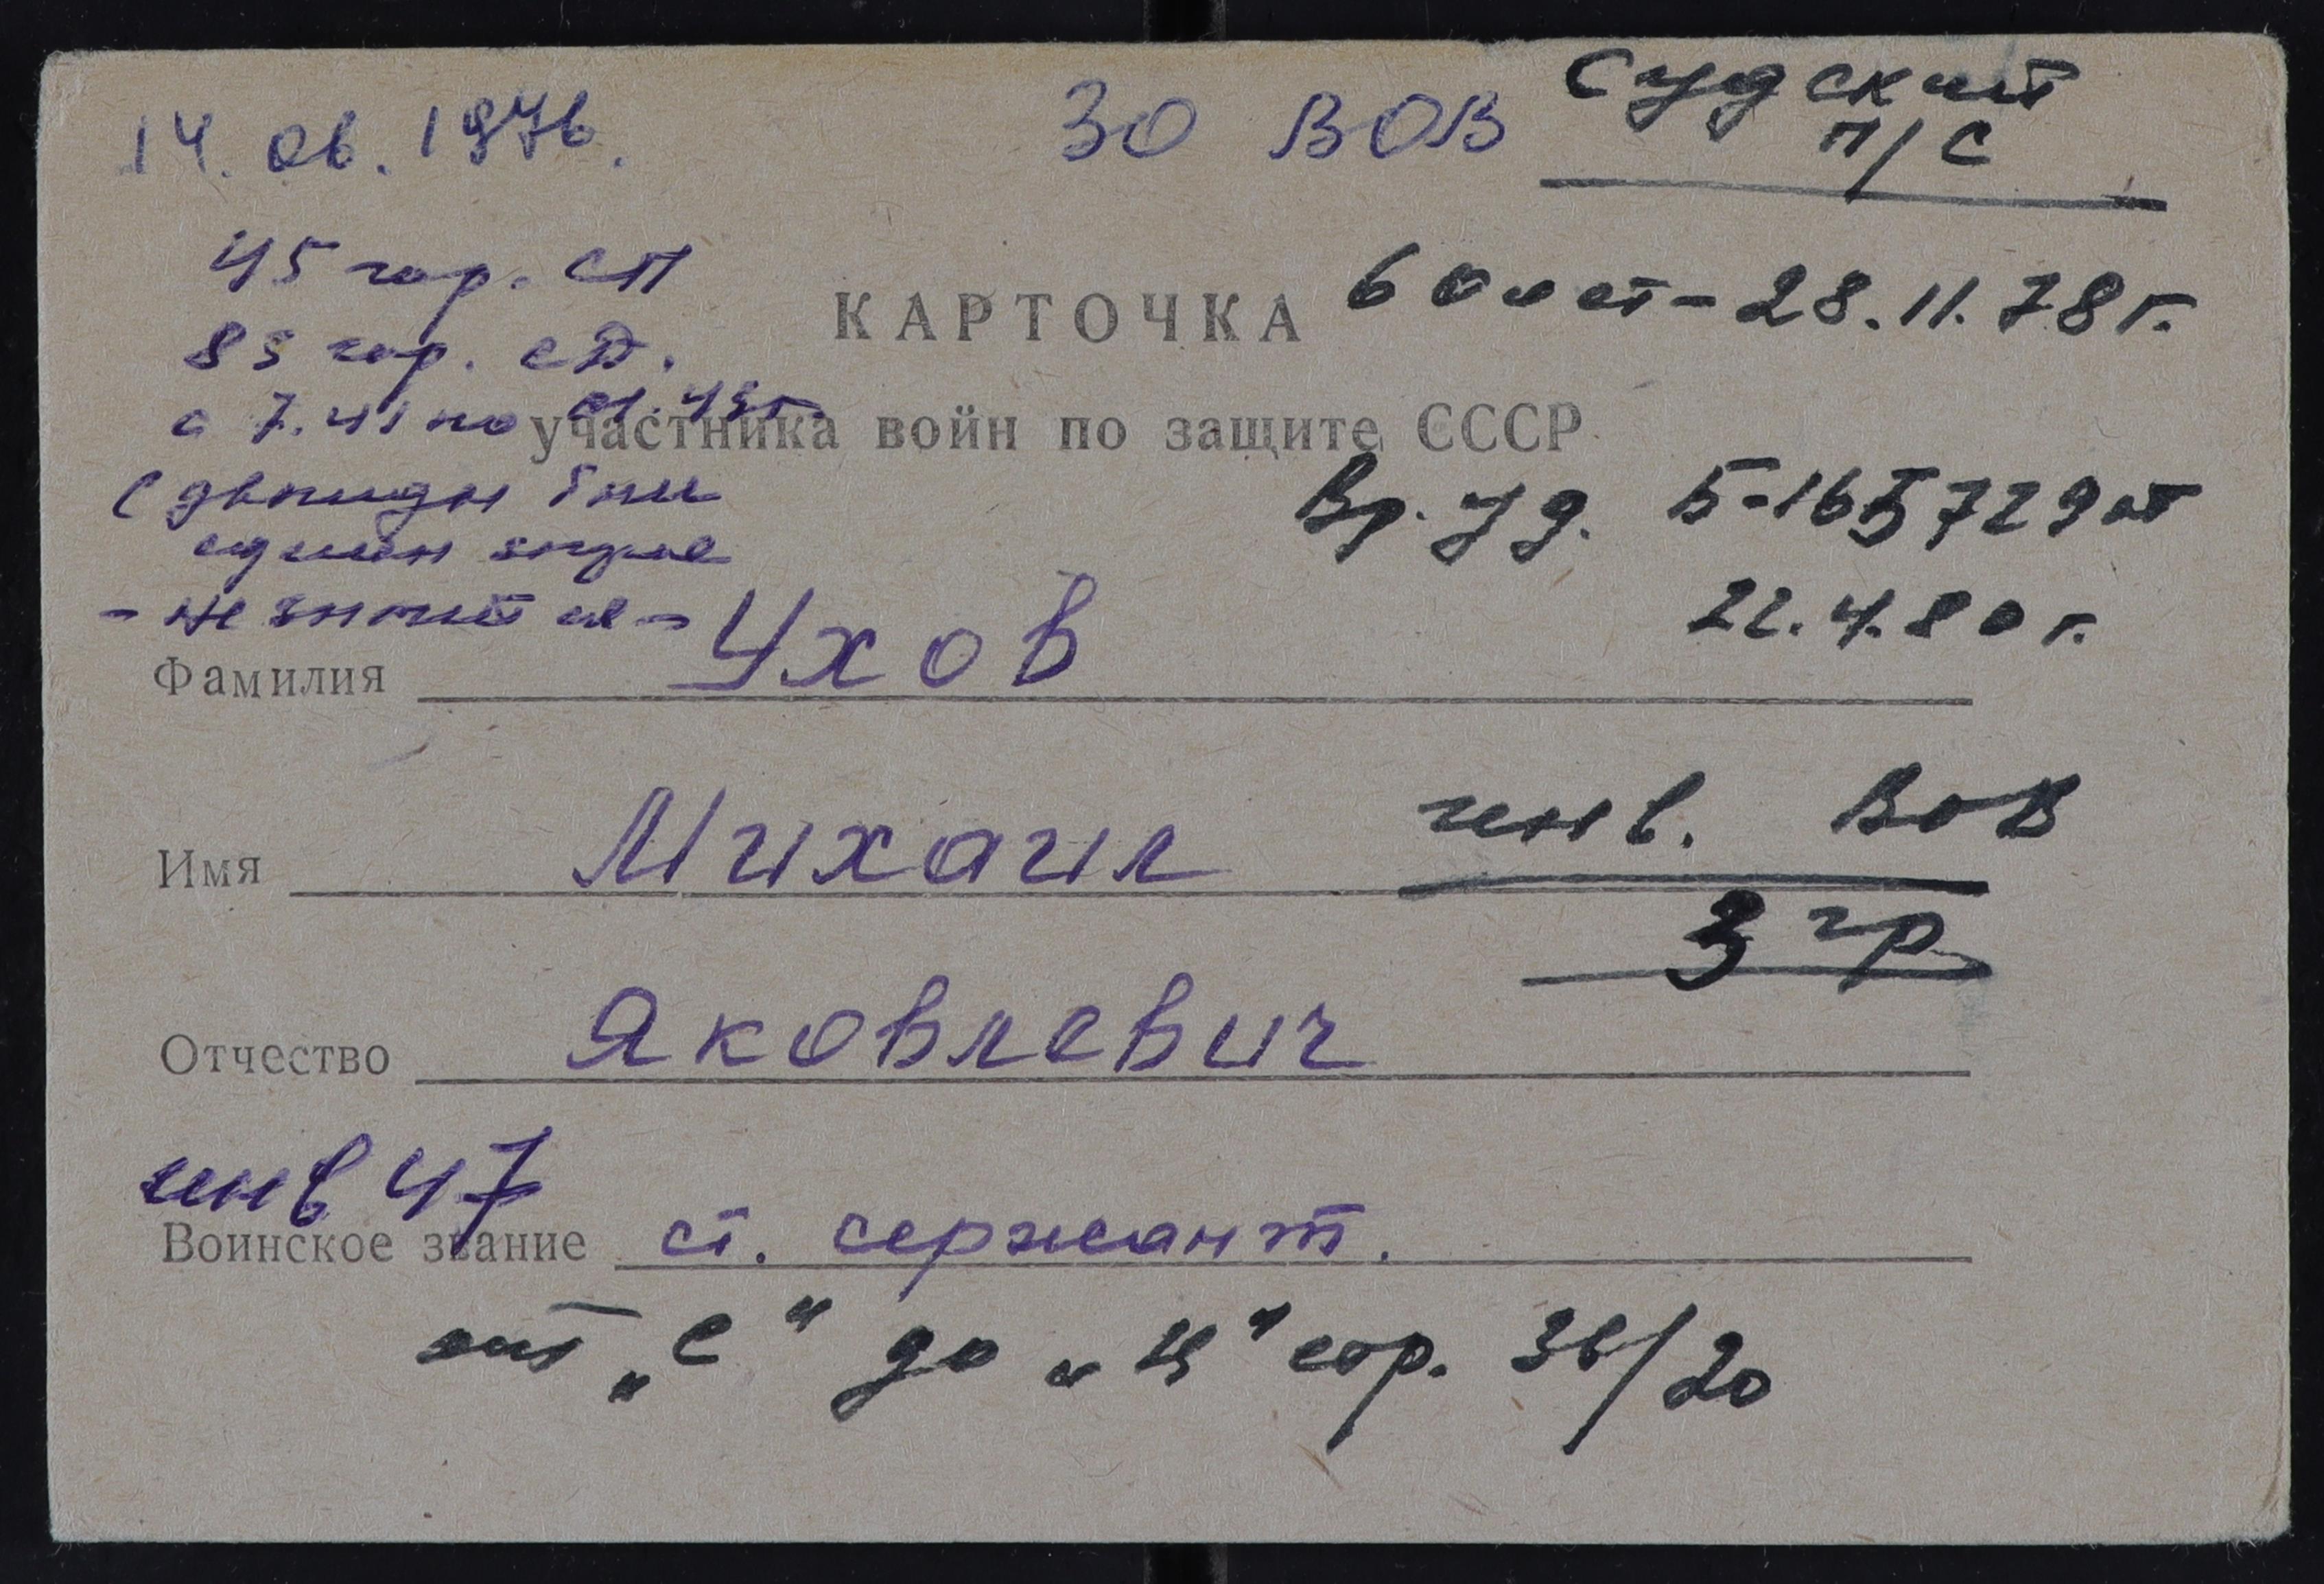 14. 06. 1976.
30 ВОВ
Судский
п/с
45 гор. СП
85 гор. СД.
КАРТОЧКА
60 лет - 28.11.78 г.
с 7.41 по 01.43 г.
участника войн по защите СССР
Вр. уд. Б-165729 от
22.4.80 г.
- не значится -
Фамилия Ухов
Имя Михаил
инв. ВОВ
3 гр
Отчество Яковлевич
инв 47
Воинское звание ст. сержант.
от „С" до „Ц" стр. 36/20